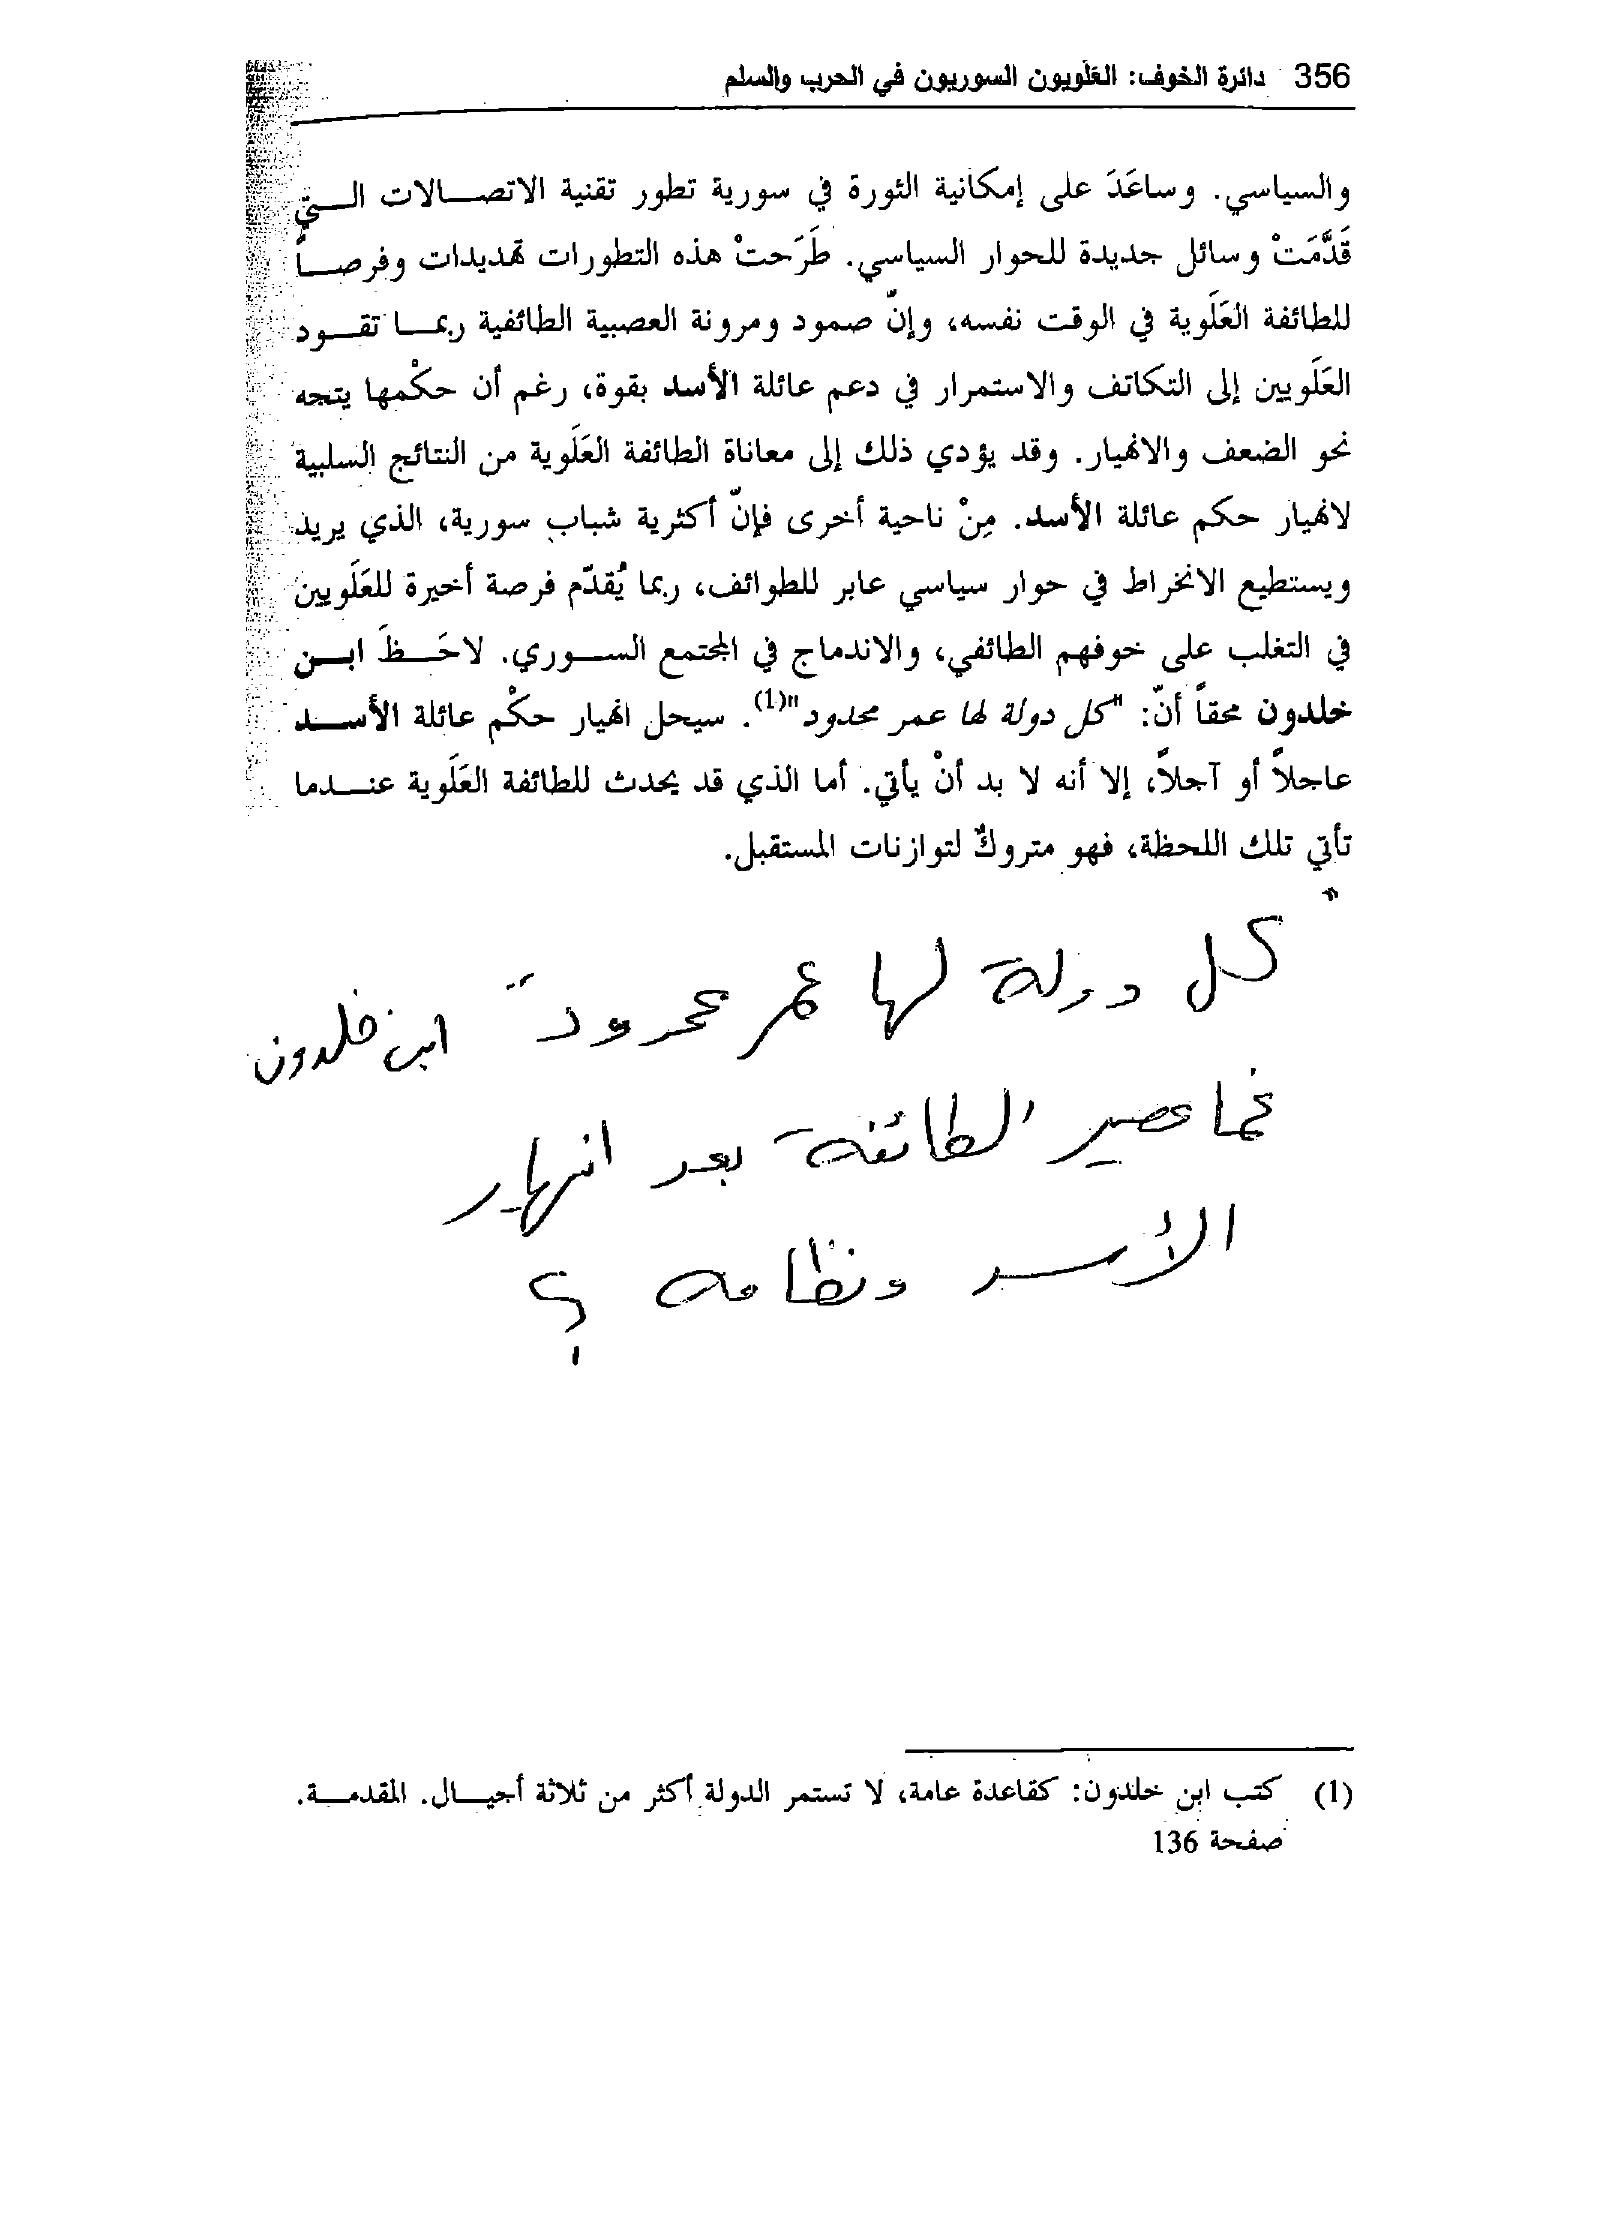 356 دائرة الخوف: العَلَويون السوريون في الحرب والسلم
والسياسي. وساعَدَ على إمكانية الثورة في سورية تطور تقنية الاتصـالات الـتي
قَدَّمَتْ وسائل جديدة للحوار السياسي. طَرَحتْ هذه التطورات تهديدات وفرصـاً
للطائفة العَلَوية في الوقت نفسه، وإنّ صمود ومرونة العصبية الطائفية ربمـا تقـود
العَلَويين إلى التكاتف والاستمرار في دعم عائلة الأسد بقوة، رغم أن حكْمها يتجه
نحو الضعف والانهيار. وقد يؤدي ذلك إلى معاناة الطائفة العَلَوية من النتائج السلبية
لانهيار حكم عائلة الأسد. مِنْ ناحية أخرى فإنّ أكثرية شباب سورية، الذي يريد
ويستطيع الانخراط في حوار سياسي عابر للطوائف، ربما يُقدّم فرصة أخيرة للعَلَويين
في التغلب على خوفهم الطائفي، والاندماج في المجتمع السـوري. لاحَـظَ ابـن
خلدون محقاً أنّ: "كل دولة لها عمر محدود"(1). سيحل انهيار حكْم عائلة الأسـد
عاجلاً أو آجلاً، إلا أنه لا بد أنْ يأتي. أما الذي قد يحدث للطائفة العَلَوية عنـدما
تأتي تلك اللحظة، فهو متروكٌ لتوازنات المستقبل.
"كل دولة لها عمر محدود" ابن خلدون
فما مصير الطائفة بعد انهيار
الأسد ونظامه ؟
(1) كتب ابن خلدون: كقاعدة عامة، لا تستمر الدولة أكثر من ثلاثة أجيـال. المقدمـة.
صفحة 136